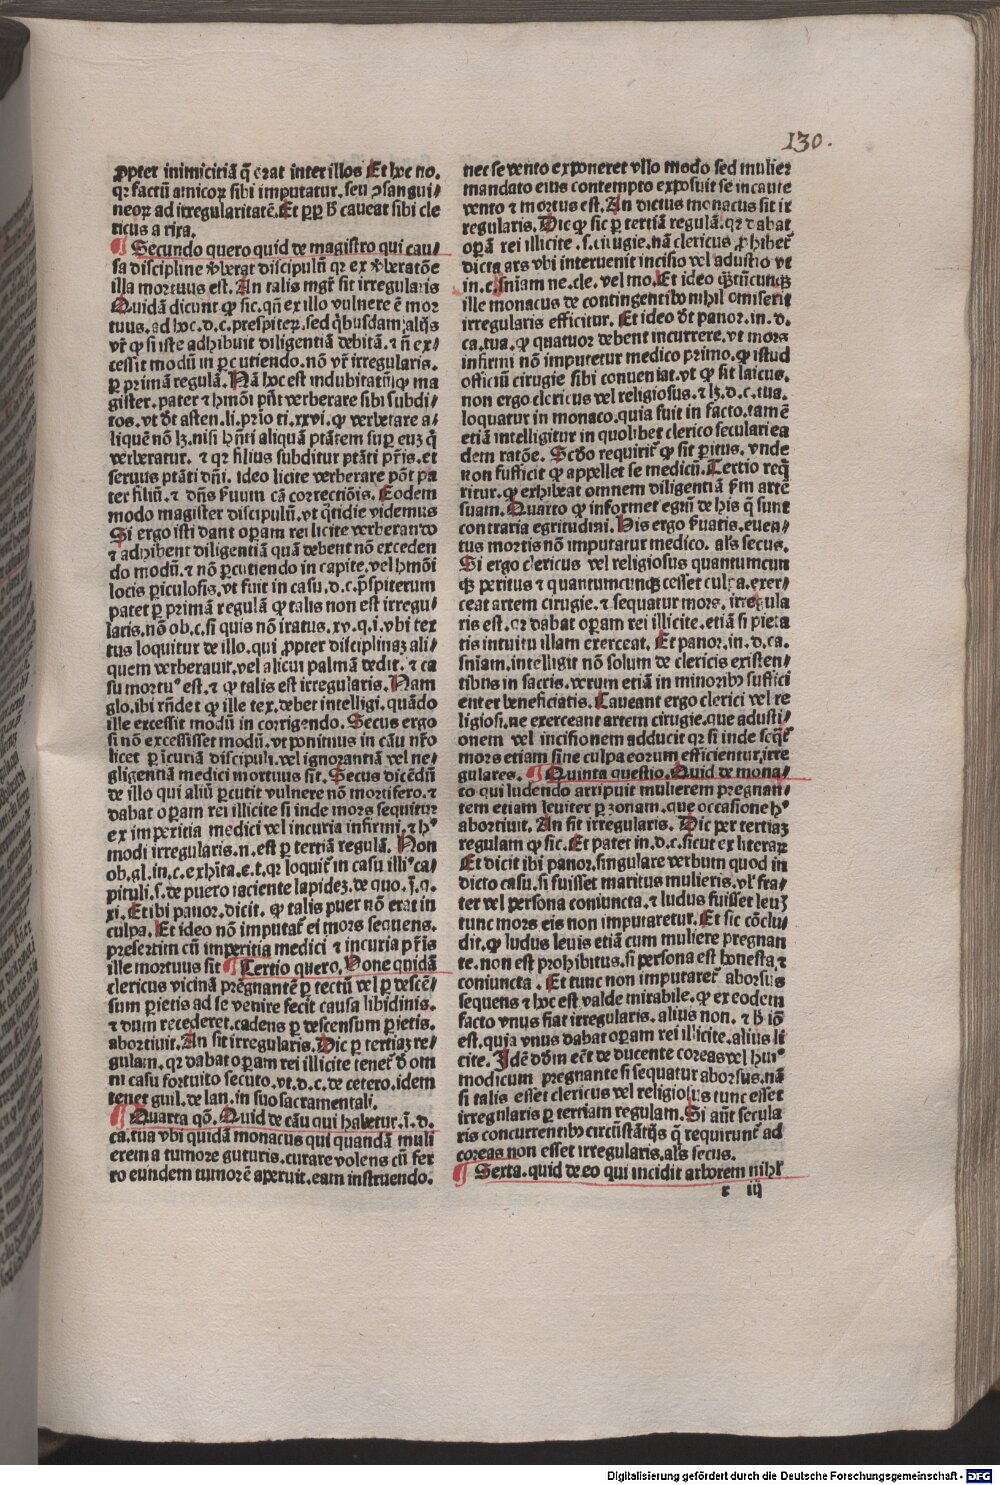 130.
ꝓpter inimicitiā q̄ erat inter illos Et hoc no.
qꝛ factū amicoꝝ sibi imputatur. seu ꝯsangui⸗
neoꝝ ad irregularitatē. Et ꝓp̄ h̄ caueat sibi cle
ricus a rixa.
¶ Secundo quero quid de magistro qui cau⸗
sa discipline v̄berat discipulū qꝛ ex v̄beratōe
illa mortuus est. An talis mgr̄ sit irregularis
Quidā dicunt ꝙ sic. qn̄ ex illo vulnere ē mor
tuus. ad hoc. d. c. prespiteꝝ. sed q̄busdam alijs
vr̄ ꝙ si iste adhibuit diligentiā debitā. ⁊ n̄ ex⸗
cessit modū in ꝑcutiendo. nō vr̄ irregularis.
ꝑ primā regulā. Nā hoc est indubitatū ꝙ ma
gister. pater ⁊ hmōi pn̄t verberare sibi subdi⸗
tos. vt dt̄ asten. li. prio ti. xxvi. ꝙ verberare a⸗
liquē nō lꝫ. nisi hn̄ti aliquā ptātem suꝑ euꝫ q̄
verberatur. ⁊ qꝛ filius subditur ptāti pr̄is. et
seruus ptāti dn̄i. ideo licite verberare pōt pa
ter filiū. ⁊ dn̄s ẜuum cā correctiōis. Eodem
modo magister discipulū. vt q̄tidie videmus
Si ergo isti dant oꝑam rei licite verberando
⁊ adhibent diligentiā quā debent nō exceden
do modū. ⁊ nō ꝑcutiendo in capite. vel hmōi
locis ꝑiculosis. vt fuit in casu. d. c. p̄spiterum
patet ꝑ primā regulā ꝙ talis non est irregu⸗
laris. nō ob. c. si quis nō iratus. xv. q. i. vbi tex
tus loquitur de illo. qui ꝓpter disciplinaꝫ ali⸗
quem verberauit. vel alicui palmā dedit. ⁊ ca
su mortuꝰ est. ⁊ ꝙ talis est irregularis. Nam
glo. ibi rn̄det ꝙ ille tex. debet intelligi. quādo
ille excessit modū in corrigendo. Secus ergo
si nō excessisset modū. vt ponimus in cāu nr̄o
licet ꝑ īcuriā discipuli. vel ignorantiā vel ne⸗
gligentiā medici mortuus sit. Secus dicēdū
de illo qui aliū ꝑcutit vulnere nō mortifero. ⁊
dabat oꝑam rei illicite si inde mors sequitur
ex imperitia medici vel incuria infirmi. ⁊ hꝰ
modi irregularis. n. est ꝑ tertiā regulā. Non
ob. gl. in. c. exhīta. e. t. qꝛ loquit̄ in casu illiꝰ ca⸗
pituli. s. de puero iaciente lapideꝫ. de quo. j. q.
xi. Et ibi panor. dicit. ꝙ talis puer nō erat in
culpa. Et ideo nō imputat̄ ei mors sequens.
presertim cū imperitia medici ⁊ incuria pr̄is
ille mortuus sit ¶ Tertio quero. Pone quidā
clericus vicinā pregnantē ꝑ tectū vel ꝑ descē⸗
sum ꝑietis ad se venire fecit causa libidinis.
⁊ dum recederet. cadens ꝑ descensum ꝑietis.
abortiuit. An sit irregularis. Dic ꝑ tertiaꝫ re⸗
gulam. qꝛ dabat oꝑam rei illicite tenet̄ d̄ om
ni casu fortuito secuto. vt. d. c. de cetero. idem
tenet guil. de lan. in suo sacramentali.
¶ Quarta qō. Quid de cāu qui habetur. ī. d.
ca. tua vbi quidā monacus qui quandā muli
erem a tumore guturis. curare volens cū fer
ro eundem tumorē aperuit. eam instruendo.
nec se vento exponeret vllo modo sed mulier
mandato eius contempto exposuit se incaute
vento ⁊ mortua est. An dictus monacus sit ir
regularis. Dic ꝙ sic ꝑ tertiā regulā. qꝛ dabat
oꝑam rei illicite. s. cirugie. nā clericus ꝓhibet̄
dicta ars vbi interuenit incisio vel adustio vt
in. c. sn̄iam ne. cle. vel mo. Et ideo q̄ntūcunqꝫ
ille monacus de contingentibꝰ nihil omiserit
irregularis efficitur. Et ideo dt̄ panor. in. d.
ca. tua. ꝙ quatuor debent incurrere. vt mors
infirmi nō imputetur medico primo. ꝙ istud
officiū cirugie sibi conueniat. vt ꝙ sit laicus.
non ergo clericus vel religiosus. ⁊ lꝫ. d. c. tua.
loquatur in monaco. quia fuit in facto. tamē
etiā intelligitur in quolibet clerico seculari ea
dem ratōe. Scd̄o requirit̄ ꝙ sit ꝑitus. vnde
non sufficit ꝙ appellet se medicū. Tertio req̄
ritur. ꝙ exhibeat omnem diligentiā ẜm artē
suam. Quarto ꝙ informet egrū de his q̄ sunt
contraria egritudini. His ergo ẜuatis. euen⸗
tus mortis nō imputatur medico. als̄ secus.
Si ergo clericus vel religiosus quantumcun
qꝫ peritus ⁊ quantumcunqꝫ cesset culpa. exer⸗
ceat artem cirugie. ⁊ sequatur mors. irregula
ris est. qꝛ dabat oꝑam rei illicite. etiā si pieta
tis intuitu illam exerceat. Et panor. in. d. ca.
sn̄iam. intelligit nō solum de clericis existen⸗
tibus in sacris. verum etiā in minoribꝰ suffici
enter beneficiatis. Caueant ergo clerici vel re
ligiosi. ne exerceant artem cirugie. que adusti⸗
onem vel incisionem adducit qꝛ si inde seq̄t̄
mors etiam sine culpa eorum efficientur. irre
gulares. ¶ Quinta questio. Quid de mona⸗
co qui ludendo arripuit mulierem pregnan⸗
tem etiam leuiter ꝑ zonam. que occasione hꝰ
abortiuit. An sit irregularis. Dic per tertiaꝫ
regulam ꝙ sic. Et patet in. d. c. sicut ex literaꝝ
Et dicit ibi panor. singulare verbum quod in
dicto casu. si fuisset maritus mulieris. vl̓ fra⸗
ter vel persona coniuncta. ⁊ ludus fuisset leuꝫ
tunc mors eis non imputaretur. Et sic cōclu⸗
dit. ꝙ ludus leuis etiā cum muliere pregnan
te. non est prohibitus. si persona est honesta. ⁊
coniuncta. Et tunc non imputaret̄ aborsus
sequens ⁊ hoc est valde mirabile. ꝙ ex eodem
facto vnus fiat irregularis. alius non. ⁊ h̄ iō
est. quia vnus dabat oꝑam rei illicite. alius li
cite. Idē dōm eēt de ducente coreas vel huiꝰ
modicum pregnante si sequatur aborsus. nā
si talis esset clericus vel religiosus tunc esset
irregularis ꝑ tertiam regulam. Si aūt secula
ris concurrentibꝰ circūstātijs q̄ requirunt̄ ad
coreas non esset irregularis. als̄ secus.
¶ Sexta. quid de eo qui incidit arborem nihl̓
r iij
Digitalisierung gefördert durch die Deutsche Forschungsgemeinschaft - DFG